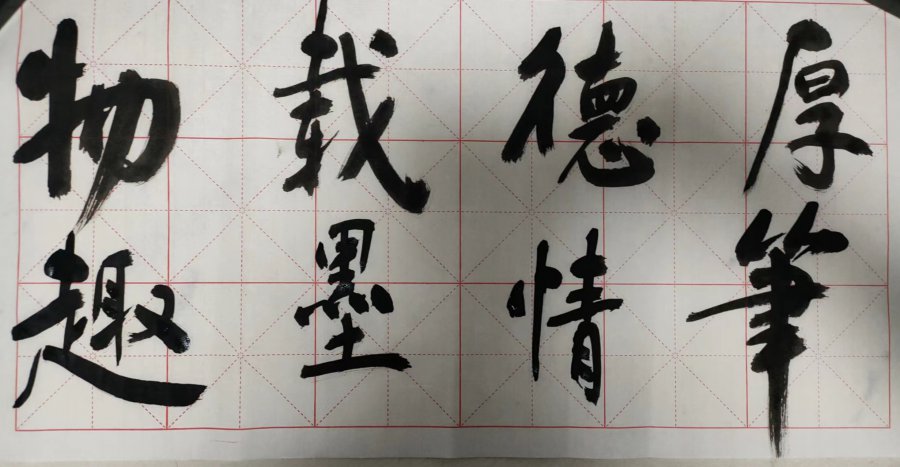 厚德載物
筆情墨趣